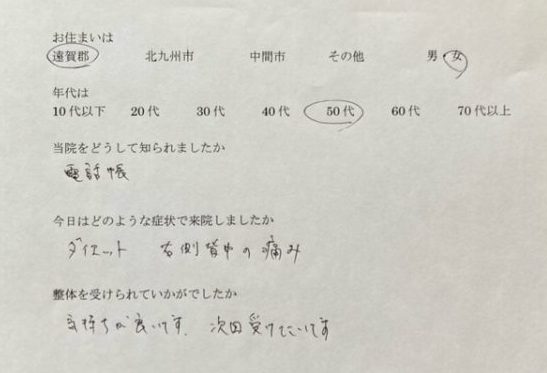 お住まいは
遠賀郡 北九州市 中間市 その他 男・女
年代は
10代以下 20代 30代 40代 50代 60代 70代以上
当院をどうして知られましたか
電話帳
今日はどのような症状で来院しましたか
ダイエット 右側背中の痛み
整体を受けられていかがでしたか
気持ちが良いです 次回受けたいです